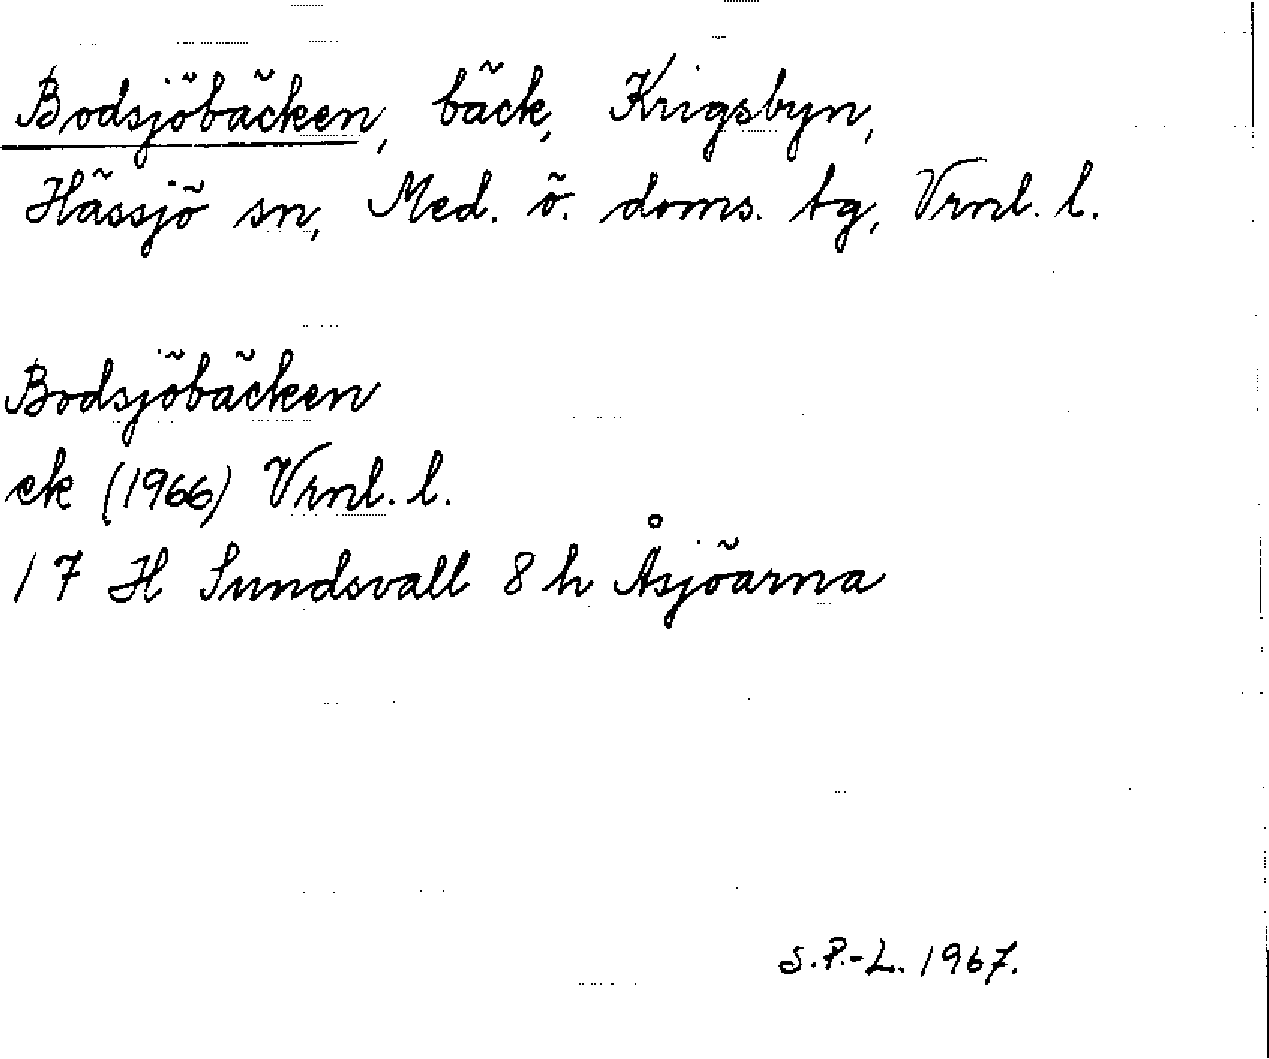 Bodsjöbäcken, bäck, Krigsbyn,
Hässjö sn, Med. ö. doms. tg, Vrnl. l.
Bodsjöbäcken
ek (1966) Vrnl. l.
17 H Sundsvall 8 h Åsjöarna
S.P.-L. 1967.